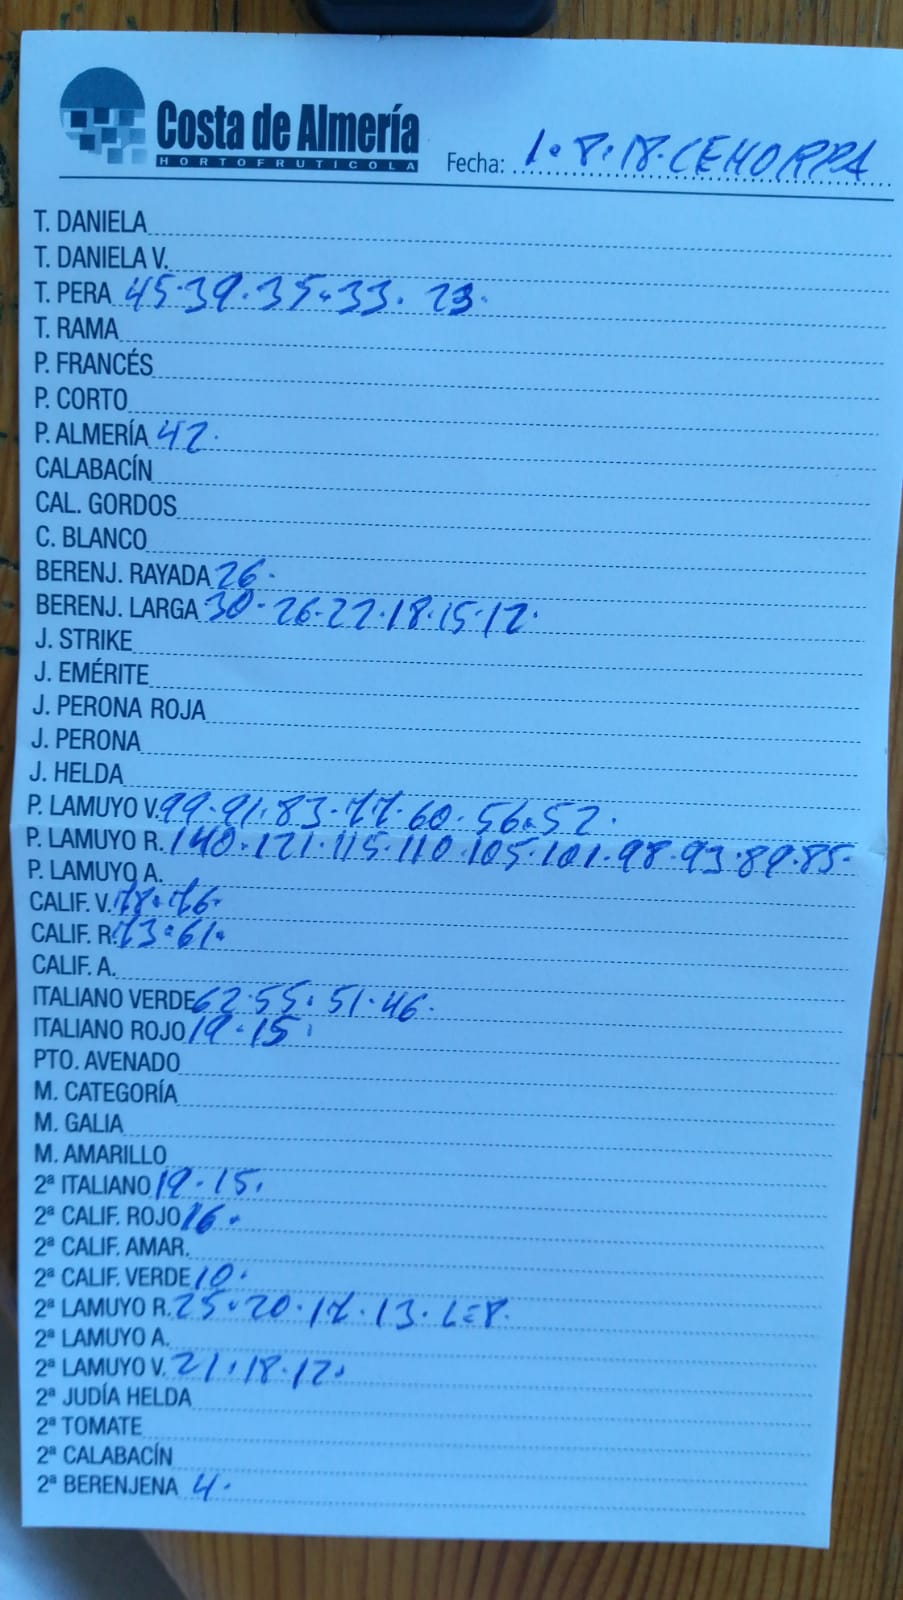 Costa de Almería
HORTOFRUTICOLA
Fecha: 1.8.18.CEHORPA
T. DANIELA
T. DANIELA V.
T. PERA 45.39.35.33. 23.
T. RAMA
P. FRANCÉS
P. CORTO
P. ALMERÍA 42.
CALABACÍN
CAL. GORDOS
C. BLANCO
BERENJ. RAYADA 26.
BERENJ. LARGA 30.26.22.18.15.12.
J. STRIKE
J. EMÉRITE
J. PERONA ROJA
J. PERONA
J. HELDA
P. LAMUYO V. 99.91.83.77.60.56.52.
P. LAMUYO R. 140.121.115.110.105.101.98.93.89.85.
P. LAMUYO A.
CALIF. V. 78.76.
CALIF. R. 73.61.
CALIF. A.
ITALIANO VERDE 62.55.51.46.
ITALIANO ROJO 19.15.
PTO. AVENADO
M. CATEGORÍA
M. GALIA
M. AMARILLO
2ª ITALIANO 19.15.
2ª CALIF. ROJO 16.
2ª CALIF. AMAR.
2ª CALIF. VERDE 10.
2ª LAMUYO R. 25.20.17.13.
2ª LAMUYO A.
2ª LAMUYO V. 21.18.12.
2ª JUDÍA HELDA
2ª TOMATE
2ª CALABACÍN
2ª BERENJENA 4.